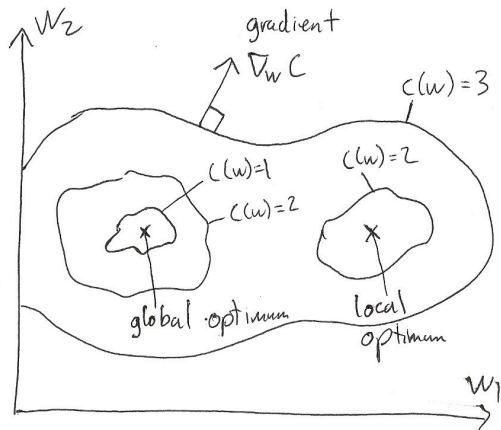 W₂
gradient
∇w C
C(w)=3
C(w)=1
C(w)=2
C(w)=2
global optimum
local
optimum
W₁